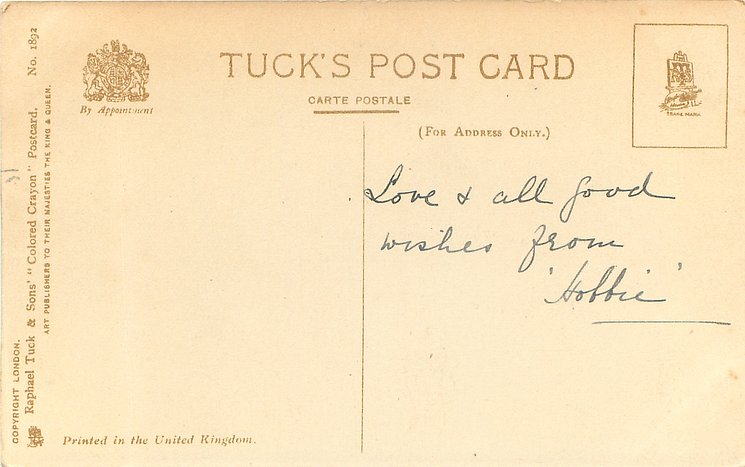 TUCK'S POST CARD
CARTE POSTALE
(FOR ADDRESS ONLY.)
By Appointment
TRADE MARK
Love & all good
wishes from
'Hobbie'
COPYRIGHT LONDON.
Raphael Tuck & Sons' "Colored Crayon" Postcard. No. 1892
ART PUBLISHERS TO THEIR MAJESTIES THE KING & QUEEN.
Printed in the United Kingdom.